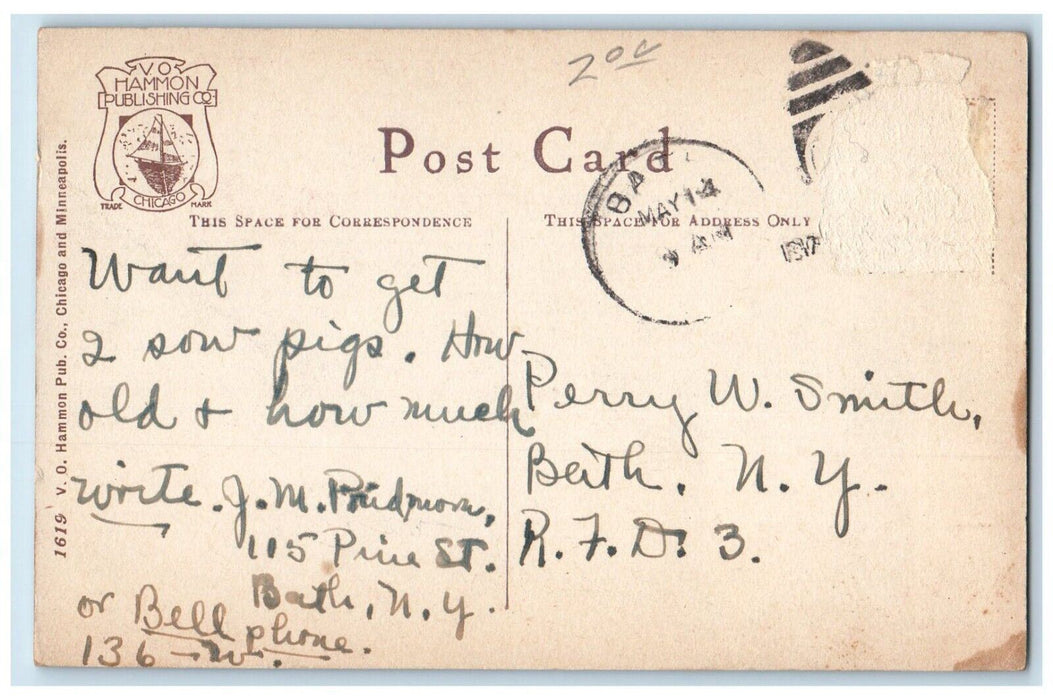 V. O.
HAMMON
PUBLISHING CO.
CHICAGO
TRADE MARK
200
Post Card
BA
MAY 14
AM
THIS SPACE FOR CORRESPONDENCE
THIS SPACE FOR ADDRESS ONLY
1619 V. O. Hammon Pub. Co., Chicago and Minneapolis.
Want to get
2 sow pigs. How
old & how much
write. J. M.
115 Pine St.
Bath, N. Y.
or Bell phone.
136-W.
Perry W. Smith,
Bath, N. Y.
R. F. D. 3.